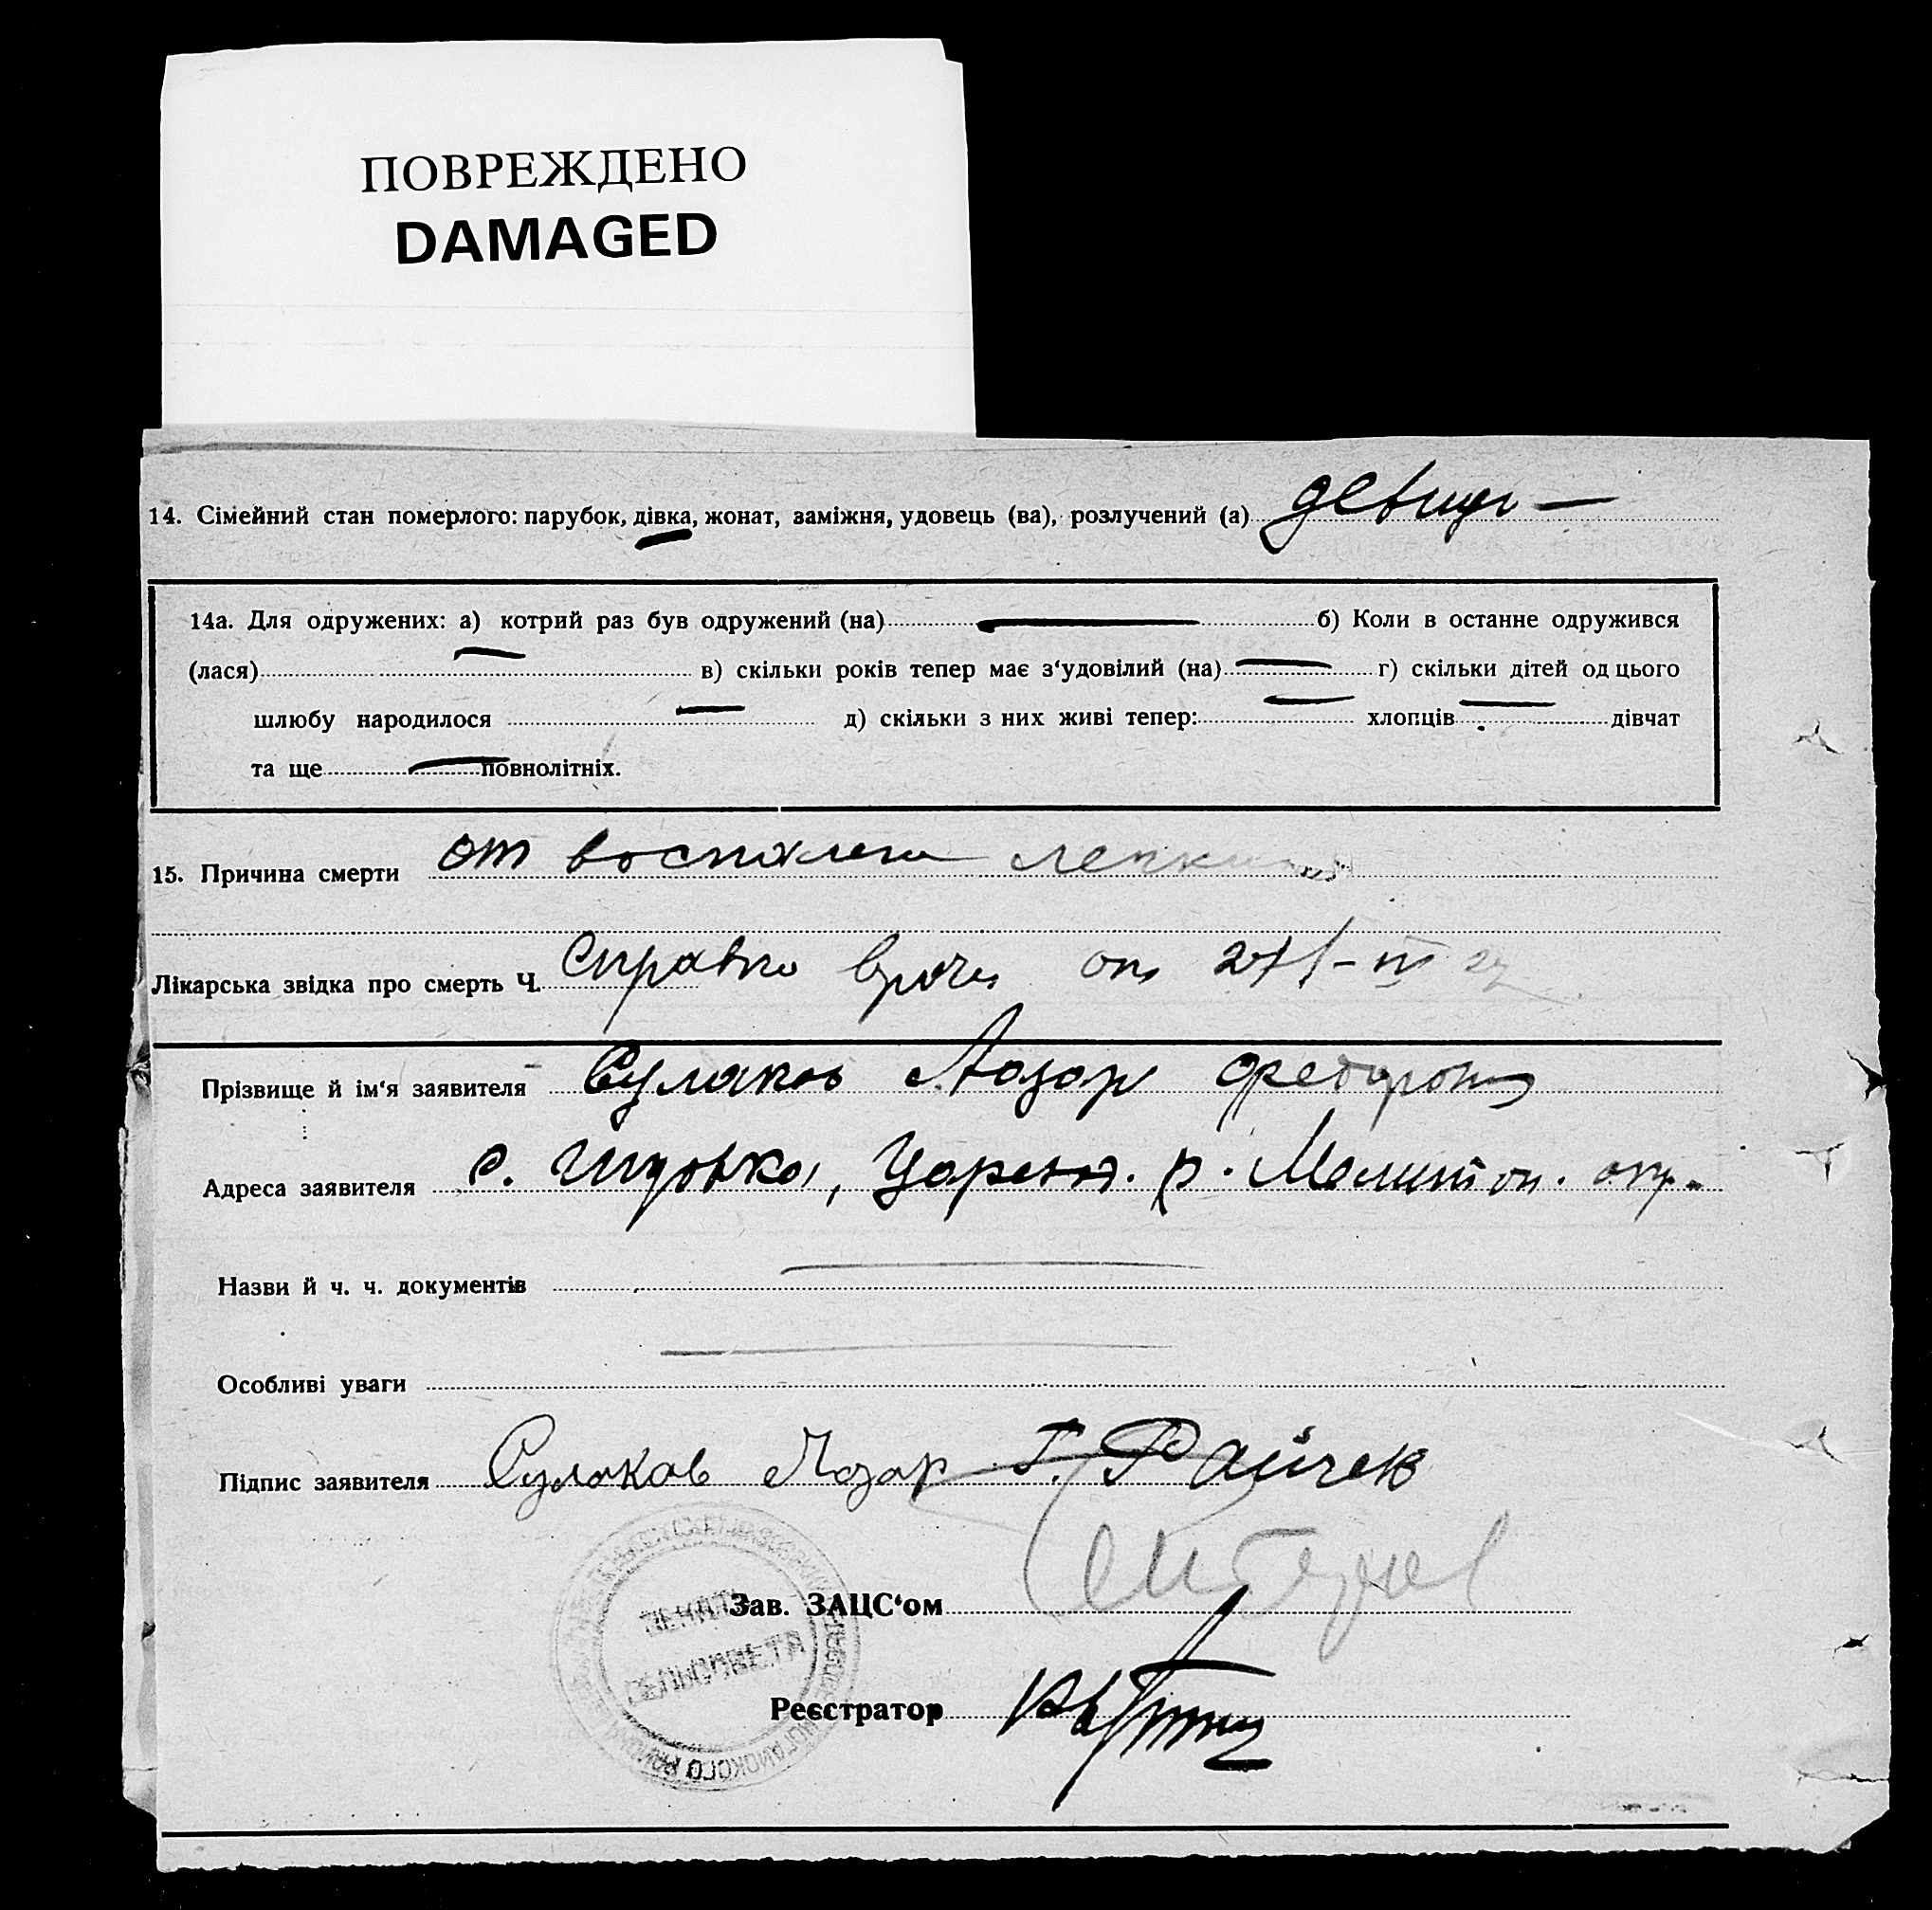 ПОВРЕЖДЕНО
DAMAGED
14. Сімейний стан померлого: парубок, дівка, жонат, заміжня, удовець (ва), розлучений (а) девица —
14а. Для одружених: а) котрий раз був одружений (на) — б) Коли в останне одружився
(лася) — в) скільки років тепер має з‘удовілий (на) — г) скільки дітей од цього
шлюбу народилося — д) скільки з них живі тепер: — хлопців — дівчат
та ще — повнолітніх.
15. Причина смерти от воспалени
Лікарська звідка про смерть Ч. Справка врача от
Прізвище й ім‘я заявителя Сулаков Лазар
Адреса заявителя с. р. Мелитоп. окр.
Назви й ч. ч. документів —
Особливі уваги —
Підпис заявителя Сулаков Лазар Г. Райчев
Зав. ЗАЦС‘ом
СЕЛЬСОВЕТА
Реєстратор